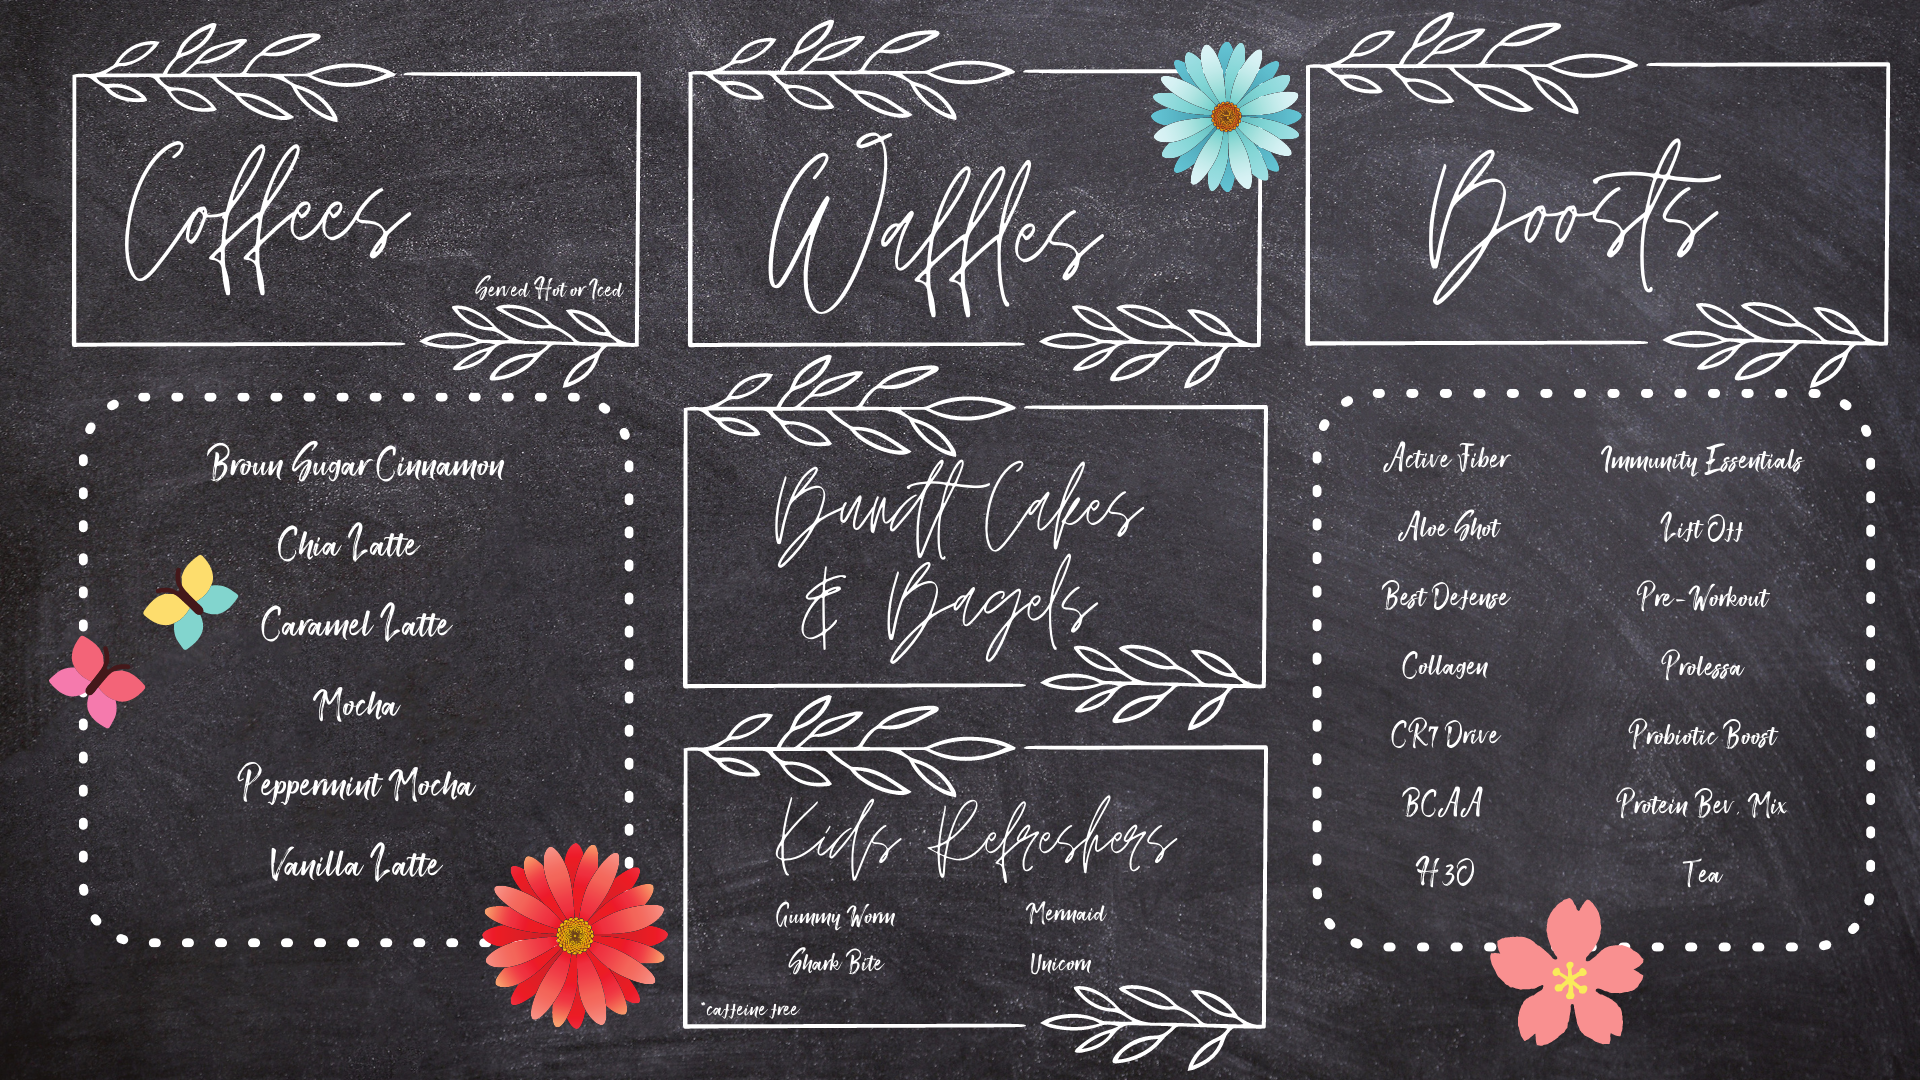 Coffees
Served Hot or Iced
Broun Sugar Cinnamon
Chia Latte
Caramel Latte
Mocha
Peppermint Mocha
Vanilla Latte
Waffles
Bundt Cakes
& Bagels
Kids Refreshers
Gummy Worm Mermaid
Shark Bite Unicorn
*caffeine free
Boosts
Active Fiber Immunity Essentials
Aloe Shot Lift Off
Best Defense Pre-Workout
Collagen Prolessa
CR7 Drive Probiotic Boost
BCAA Protein Bev. Mix
H3O Tea